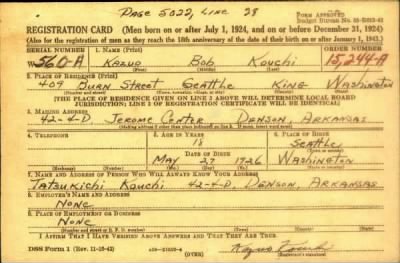 PAGE 5022, LINE 28
FORM APPROVED
Budget Bureau No. 33-R012-42
REGISTRATION CARD (Men born on or after July 1, 1924, and on or before December 31, 1924)
(Also for the registration of men as they reach the 18th anniversary of the date of their birth on or after January 1, 1943.)
SERIAL NUMBER 1. NAME (Print) ORDER NUMBER
560-A KAZUO BOB KOUCHI 15,244-A
(First) (Middle) (Last)
2. PLACE OF RESIDENCE (Print)
409 STREET SEATTLE KING WASHINGTON
(Number and street) (Town, township, village, or city) (County) (State)
[THE PLACE OF RESIDENCE GIVEN ON LINE 2 ABOVE WILL DETERMINE LOCAL BOARD
JURISDICTION; LINE 2 OF REGISTRATION CERTIFICATE WILL BE IDENTICAL]
3. MAILING ADDRESS
42-4-D JEROME CENTER DENSON, ARKANSAS
[Mailing address if other than place indicated on line 2. If same, insert word same]
4. TELEPHONE 5. AGE IN YEARS 6. PLACE OF BIRTH
18 SEATTLE
DATE OF BIRTH (Town or county)
MAY 27 1926 WASHINGTON
(Exchange) (Number) (Mo.) (Day) (Yr.) (State or country)
7. NAME AND ADDRESS OF PERSON WHO WILL ALWAYS KNOW YOUR ADDRESS
TATSUKICHI KOUCHI 42-4-D, DENSON, ARKANSAS
8. EMPLOYER'S NAME AND ADDRESS
NONE
9. PLACE OF EMPLOYMENT OR BUSINESS
NONE
(Number and street or R. F. D. number) (Town) (County) (State)
I AFFIRM THAT I HAVE VERIFIED ABOVE ANSWERS AND THAT THEY ARE TRUE.
DSS Form 1 (Rev. 11-16-42) (OVER) Kazuo Kouchi